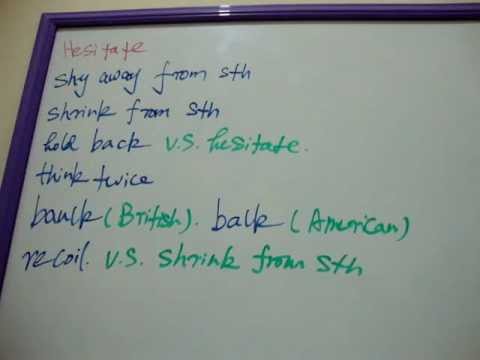 Hesitate
shy away from sth
shrink from sth
hold back v.s. hesitate.
think twice
baulk (British). balk (American)
recoil. v.s. shrink from sth